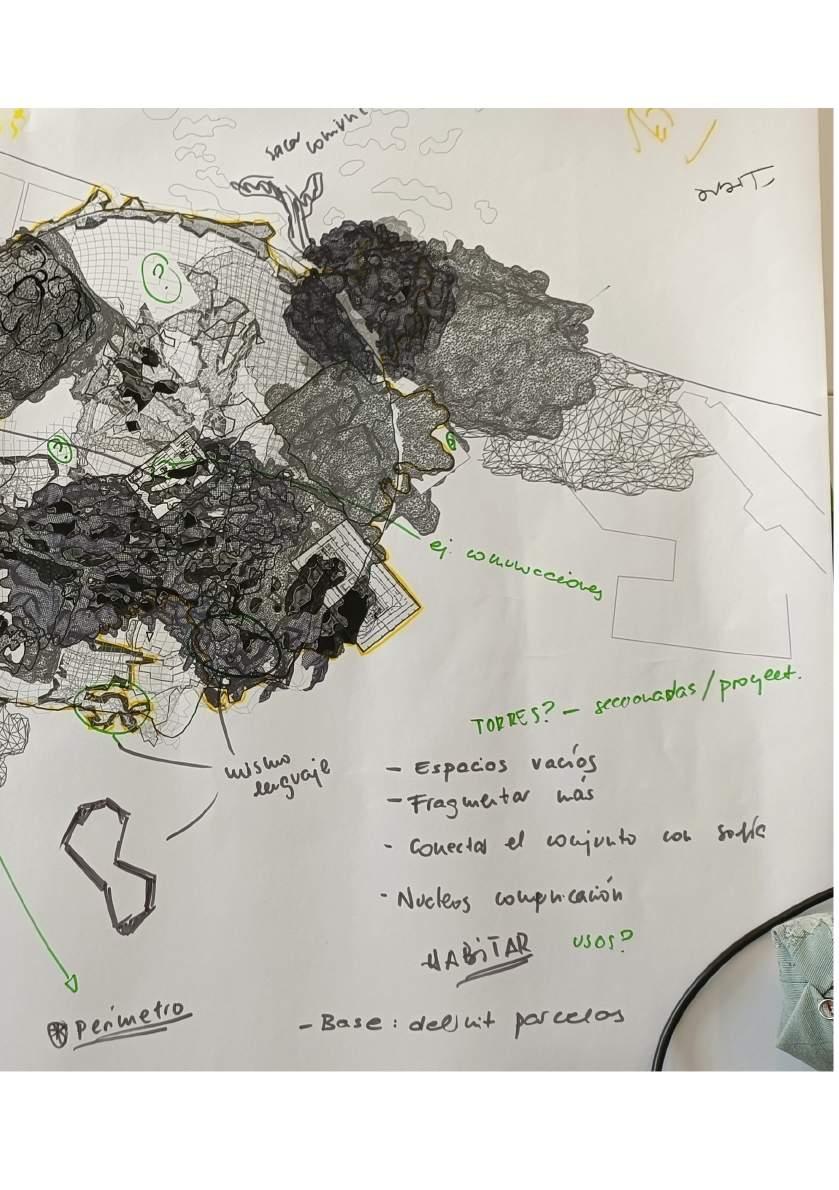 sacar
?
?
ej. comunicaciones
TORRES? - seccionadas / proyect.
mismo
lenguaje
- Espacios vacíos
- Fragmentar más
- Conectar el conjunto con
- Nucleos comunicación
HABITAR USOS?
* perímetro
- Base: parcelas